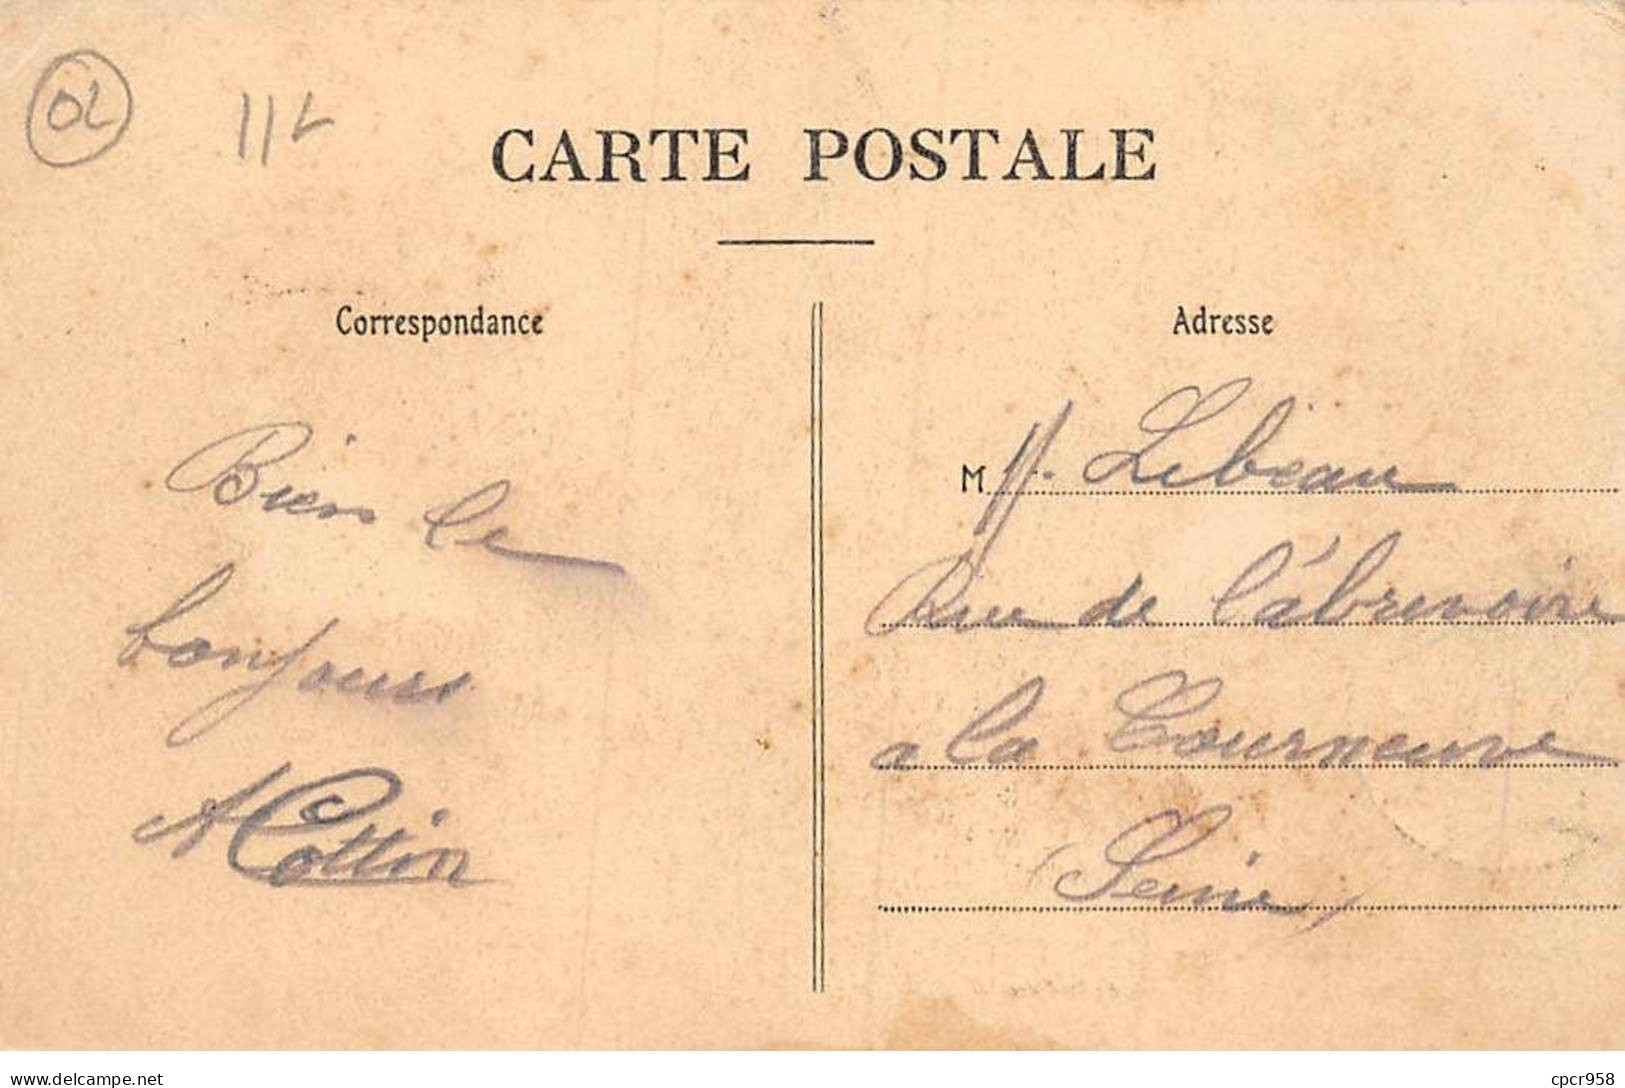 02
CARTE POSTALE
Correspondance
Bien le
bonjours
A Collin
Adresse
M Lebeau
Rue de l'abrevoire
a la Courneuve
(Seine)
delcampe.net
cpcr958